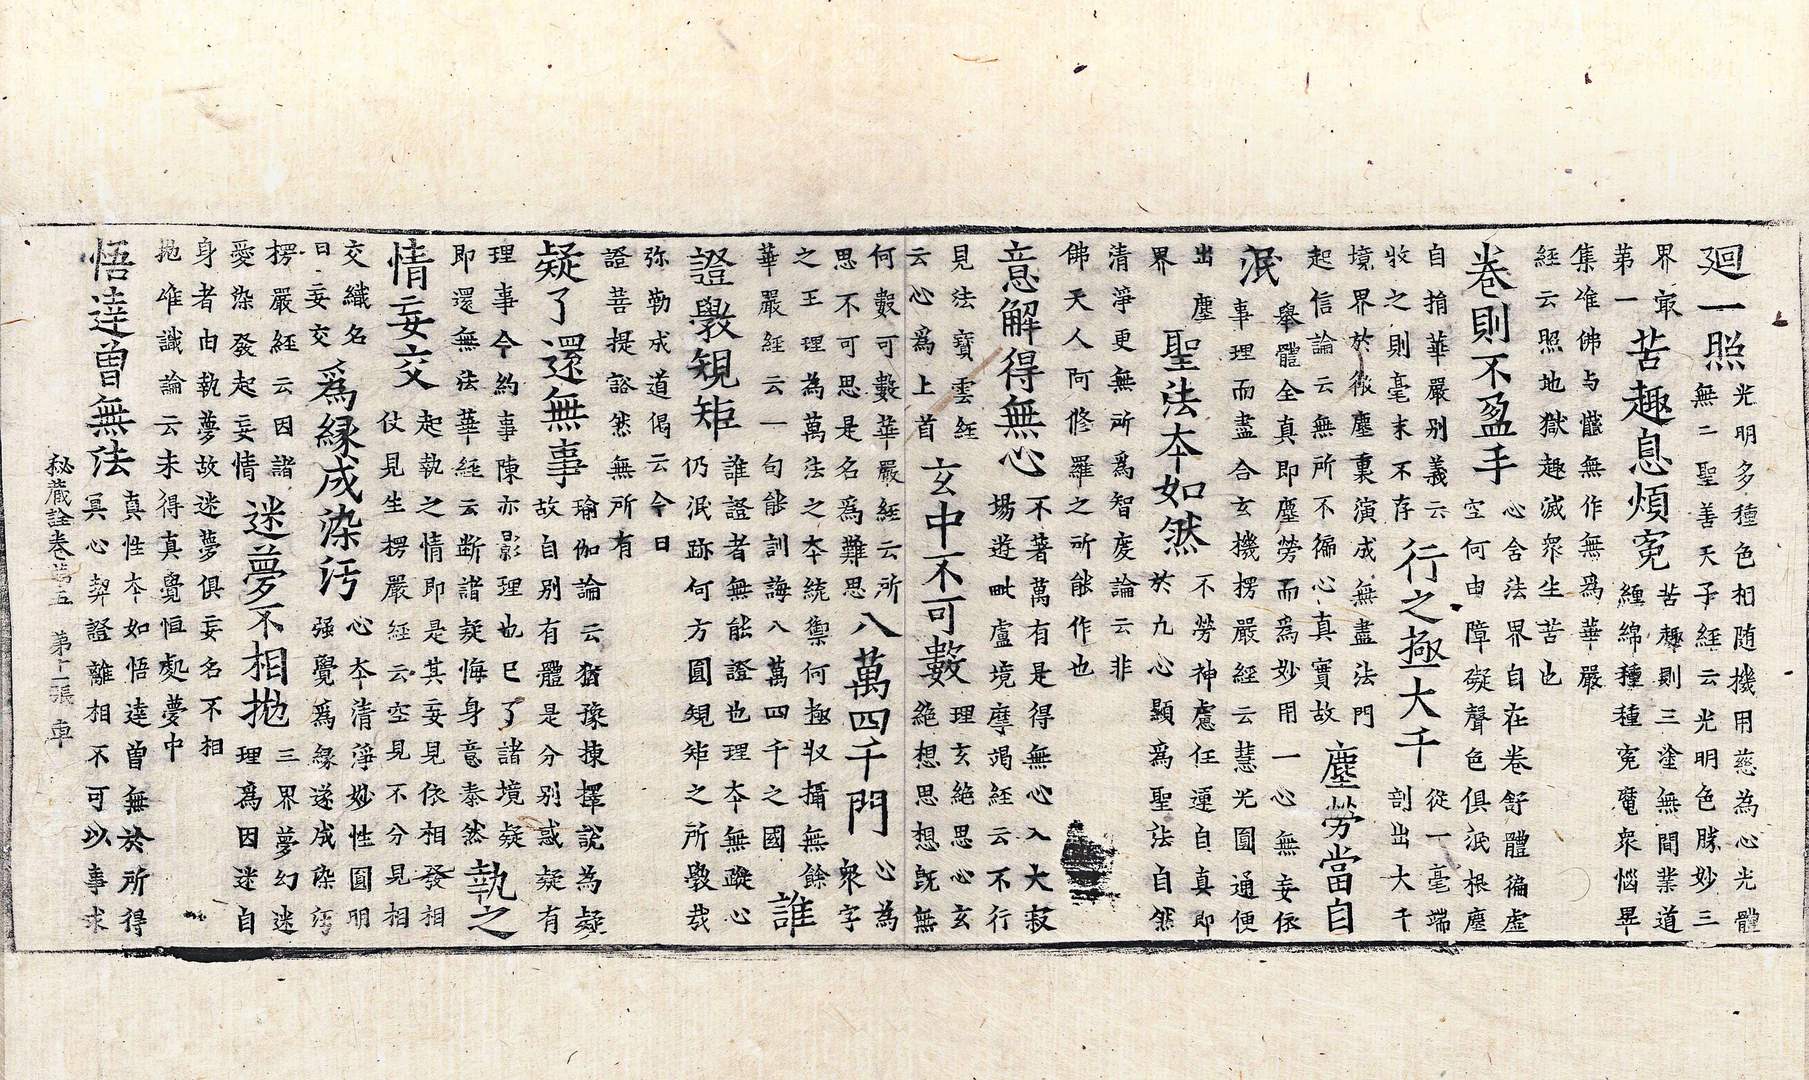 廻一照光明多種色相随機用慈為心光體無二聖善天子經云光明色勝妙三
界㝡第一苦趣息煩寃苦趣則三塗無間業道纏綿種種寃魔衆惱畢
集唯佛与體無作無爲華嚴經云照地獄趣滅衆生苦也
卷則不盈手心含法界自在卷舒體徧虚空何由障礙聲色俱泯根塵
自捎華嚴别義云收之則毫末不存行之極大千從一毫端剖出大千
境界於微塵裏演成無盡法門起信論云無所不徧心真實故塵勞當自
泯舉體全真即塵勞而爲妙用一心無妄依事理而盡合玄機楞嚴經云慧光圓通便
出塵界聖法本如然不勞神慮任運自真即於九心顯爲聖法自然
清淨更無所爲智度論云非佛天人阿修羅之所能作也
意解得無心不著萬有是得無心入大寂場遊毗盧境摩竭經云不行
見法寶雲經云心爲上首玄中不可數理玄絶思心玄絶想思想旣無
何數可數華嚴經云所思不可思是名爲難思八萬四千門心為衆字
之王理為萬法之本統禦何極収攝無餘華嚴經云一句能訓誨八萬四千之國誰
證斆規矩誰證者無能證也理本無蹤心仍泯跡何方圓規矩之所斆哉
弥勒成道偈云今日證菩提谿然無所有
疑了還無事瑜伽論云猶豫揀擇說為疑故自别有體是分别惑疑有
理事今約事陳亦影理也已了諸境疑即還無法華經云斷諸疑悔身意泰然執之
情妄交起執之情即是其妄見依相發相仗見生楞嚴經云空見不分見相
交織名曰妄交爲緣成染汚心本清淨妙性圓明强覺爲緣遂成染汚
楞嚴經云因諸愛染發起妄情迷夢不相抛三界夢幻迷理爲因迷自
身者由執夢故迷夢俱妄名不相抛唯識論云未得真覺恒處夢中
悟達曾無法真性本如悟達曾無於所得冥心契證離相不可以事求
秘藏詮卷第五　第十二張　車